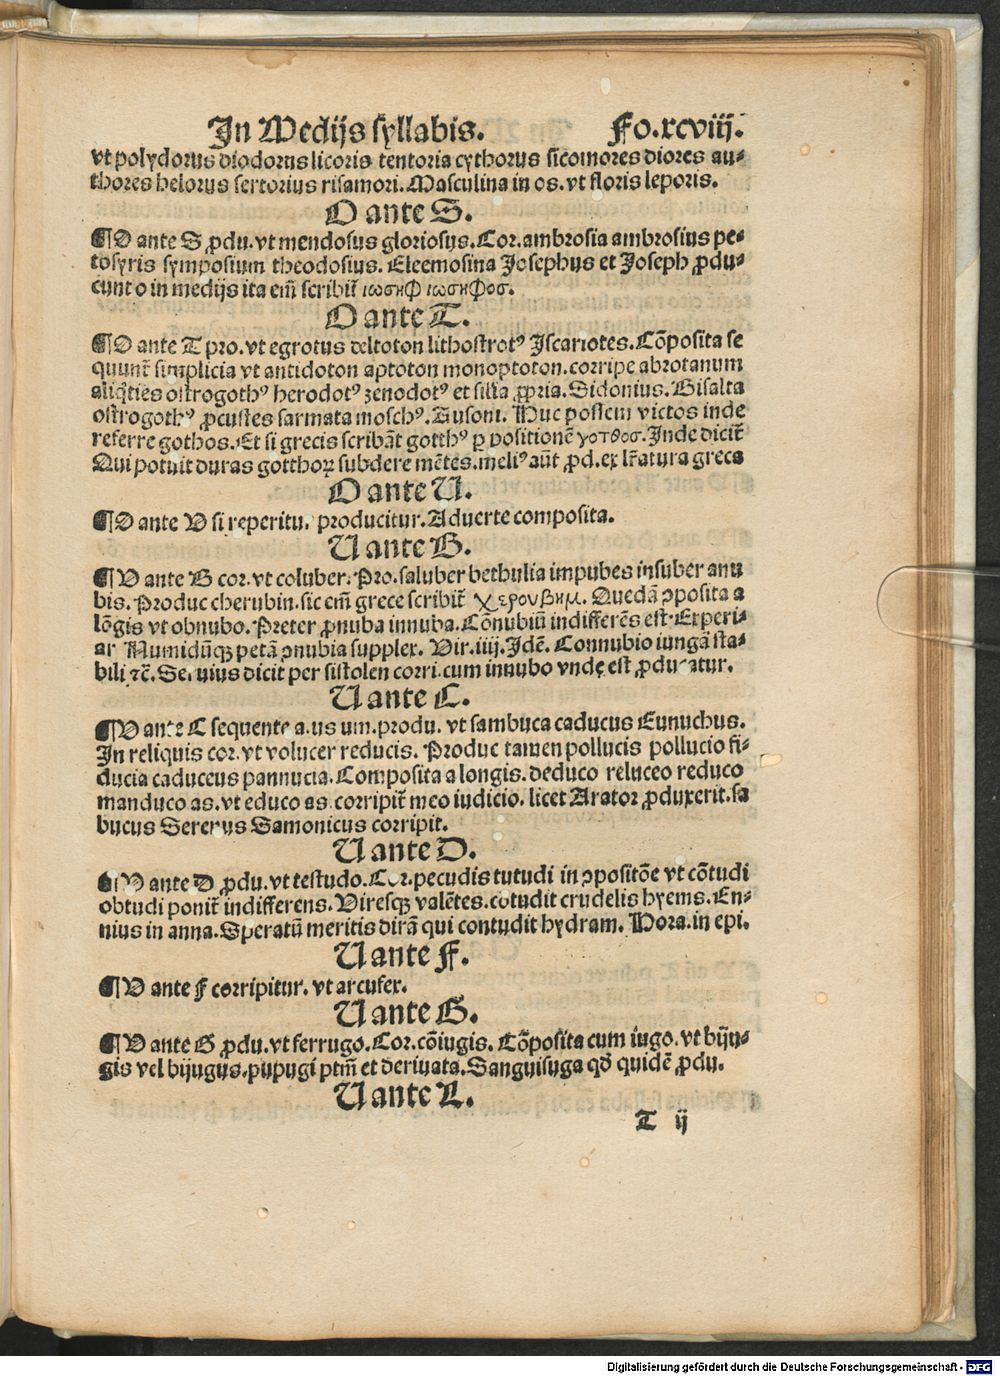 In Medijs syllabis. Fo.xcviij.
vt polydorus diodorus licoris tentoria cythorus sicomores diores au⸗
thores helorus sertorius risamori. Masculina in os. vt floris leporis.
O ante S.
¶O ante S ꝓdu. vt mendosus gloriosus. Cor. ambrosia ambrosius pe⸗
tosyris symposium theodosius. Eleemosina Josephus et Joseph ꝓdu⸗
cunt o in medijs ita em̄ scribit̄ ιωσηφ ιωσηφοσ.
O ante T.
¶O ante T pro. vt egrotus deltoton lithostrotꝰ Iscariotes. Cōposita se
quunt̄ simplicia vt antidoton aptoton monoptoton. corripe abrotanum
ostrogothꝰ herodotꝰ zenodotꝰ et silia ꝓpria. Sidonius. Bisalta
ostrogothꝰ ꝓcustes sarmata moschꝰ. Ausoni. Huc possem victos inde
referre gothos. Et si grecis scribāt gotthꝰ ꝑ positionē γοτθοσ. Inde dicit̄
Qui potuit duras gotthoꝝ subdere mētes. meliꝰ aūt ꝓd. ex lr̄atura greca
O ante U.
¶O ante V si reperitu. producitur. Aduerte composita.
U ante B.
¶V ante B cor. vt coluber. Pro. saluber bethulia impubes insuber anu
bis. Produc cherubin. sic em̄ grece scribit̄ χερουβημ. Quedā ꝯposita a
lōgis vt obnubo. Preter ꝓnuba innuba. Cōnubiū indifferēs est. Experi⸗
ar Numidūqꝫ petā ꝯnubia supplex. Vir. iiij. Idē. Connubio iungā sta⸗
bili ⁊c̄. Seruius dicit per sistolen corri. cum innubo vnde est ꝓducatur.
U ante C.
¶V ante C sequente a. us um. produ. vt sambuca caducus Eunuchus.
In reliquis cor. vt volucer reducis. Produc tamen pollucis pollucio fi⸗
ducia caduceus pannucia. Composita a longis. deduco reluceo reduco
manduco as. vt educo as corripit̄ meo iudicio. licet Arator ꝓduxerit. sa
bucus Serenus Samonicus corripit.
U ante D.
¶V ante D ꝓdu. vt testudo. Cor. pecudis tutudi in ꝯpositōe vt cōtudi
obtudi ponit̄ indifferens. Viresqꝫ valētes. cōtudit crudelis hyems. En⸗
nius in anna. Speratū meritis dirā qui contudit hydram. Hora. in epi.
U ante F.
¶V ante f corripitur. vt arcufex.
U ante G.
¶V ante G ꝓdu. vt ferrugo. Cor. cōiugis. Cōposita cum iugo. vt biju⸗
gis vel bijugus. pupugi ptm̄ et deriuata. Sanguisuga qd̄ quidē ꝓdu.
U ante L.
T ij
Digitalisierung gefördert durch die Deutsche Forschungsgemeinschaft - DFG